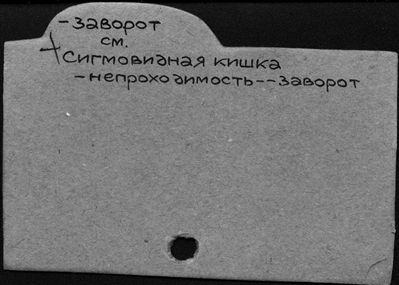 -заворот
см.
Сигмовидная кишка
-непроходимость--заворот